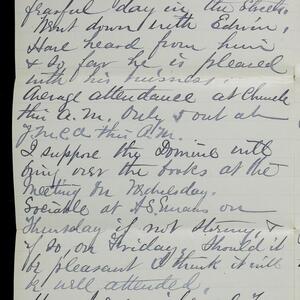 fearful day in the Streets.
Went down with Edwin.
Have heard from him
& so far he is pleased
with his business.
Average attendance at Church
this A.M. Only 8 out at
Y.M.C.A this A.M.
I suppose the Domine will
bring over the books at the
Meeting on Wednesday.
Sociable at A.S. on
Thursday if not Stormy, &
if so, on Friday. Should it
be pleasant I think it will
be well attended.